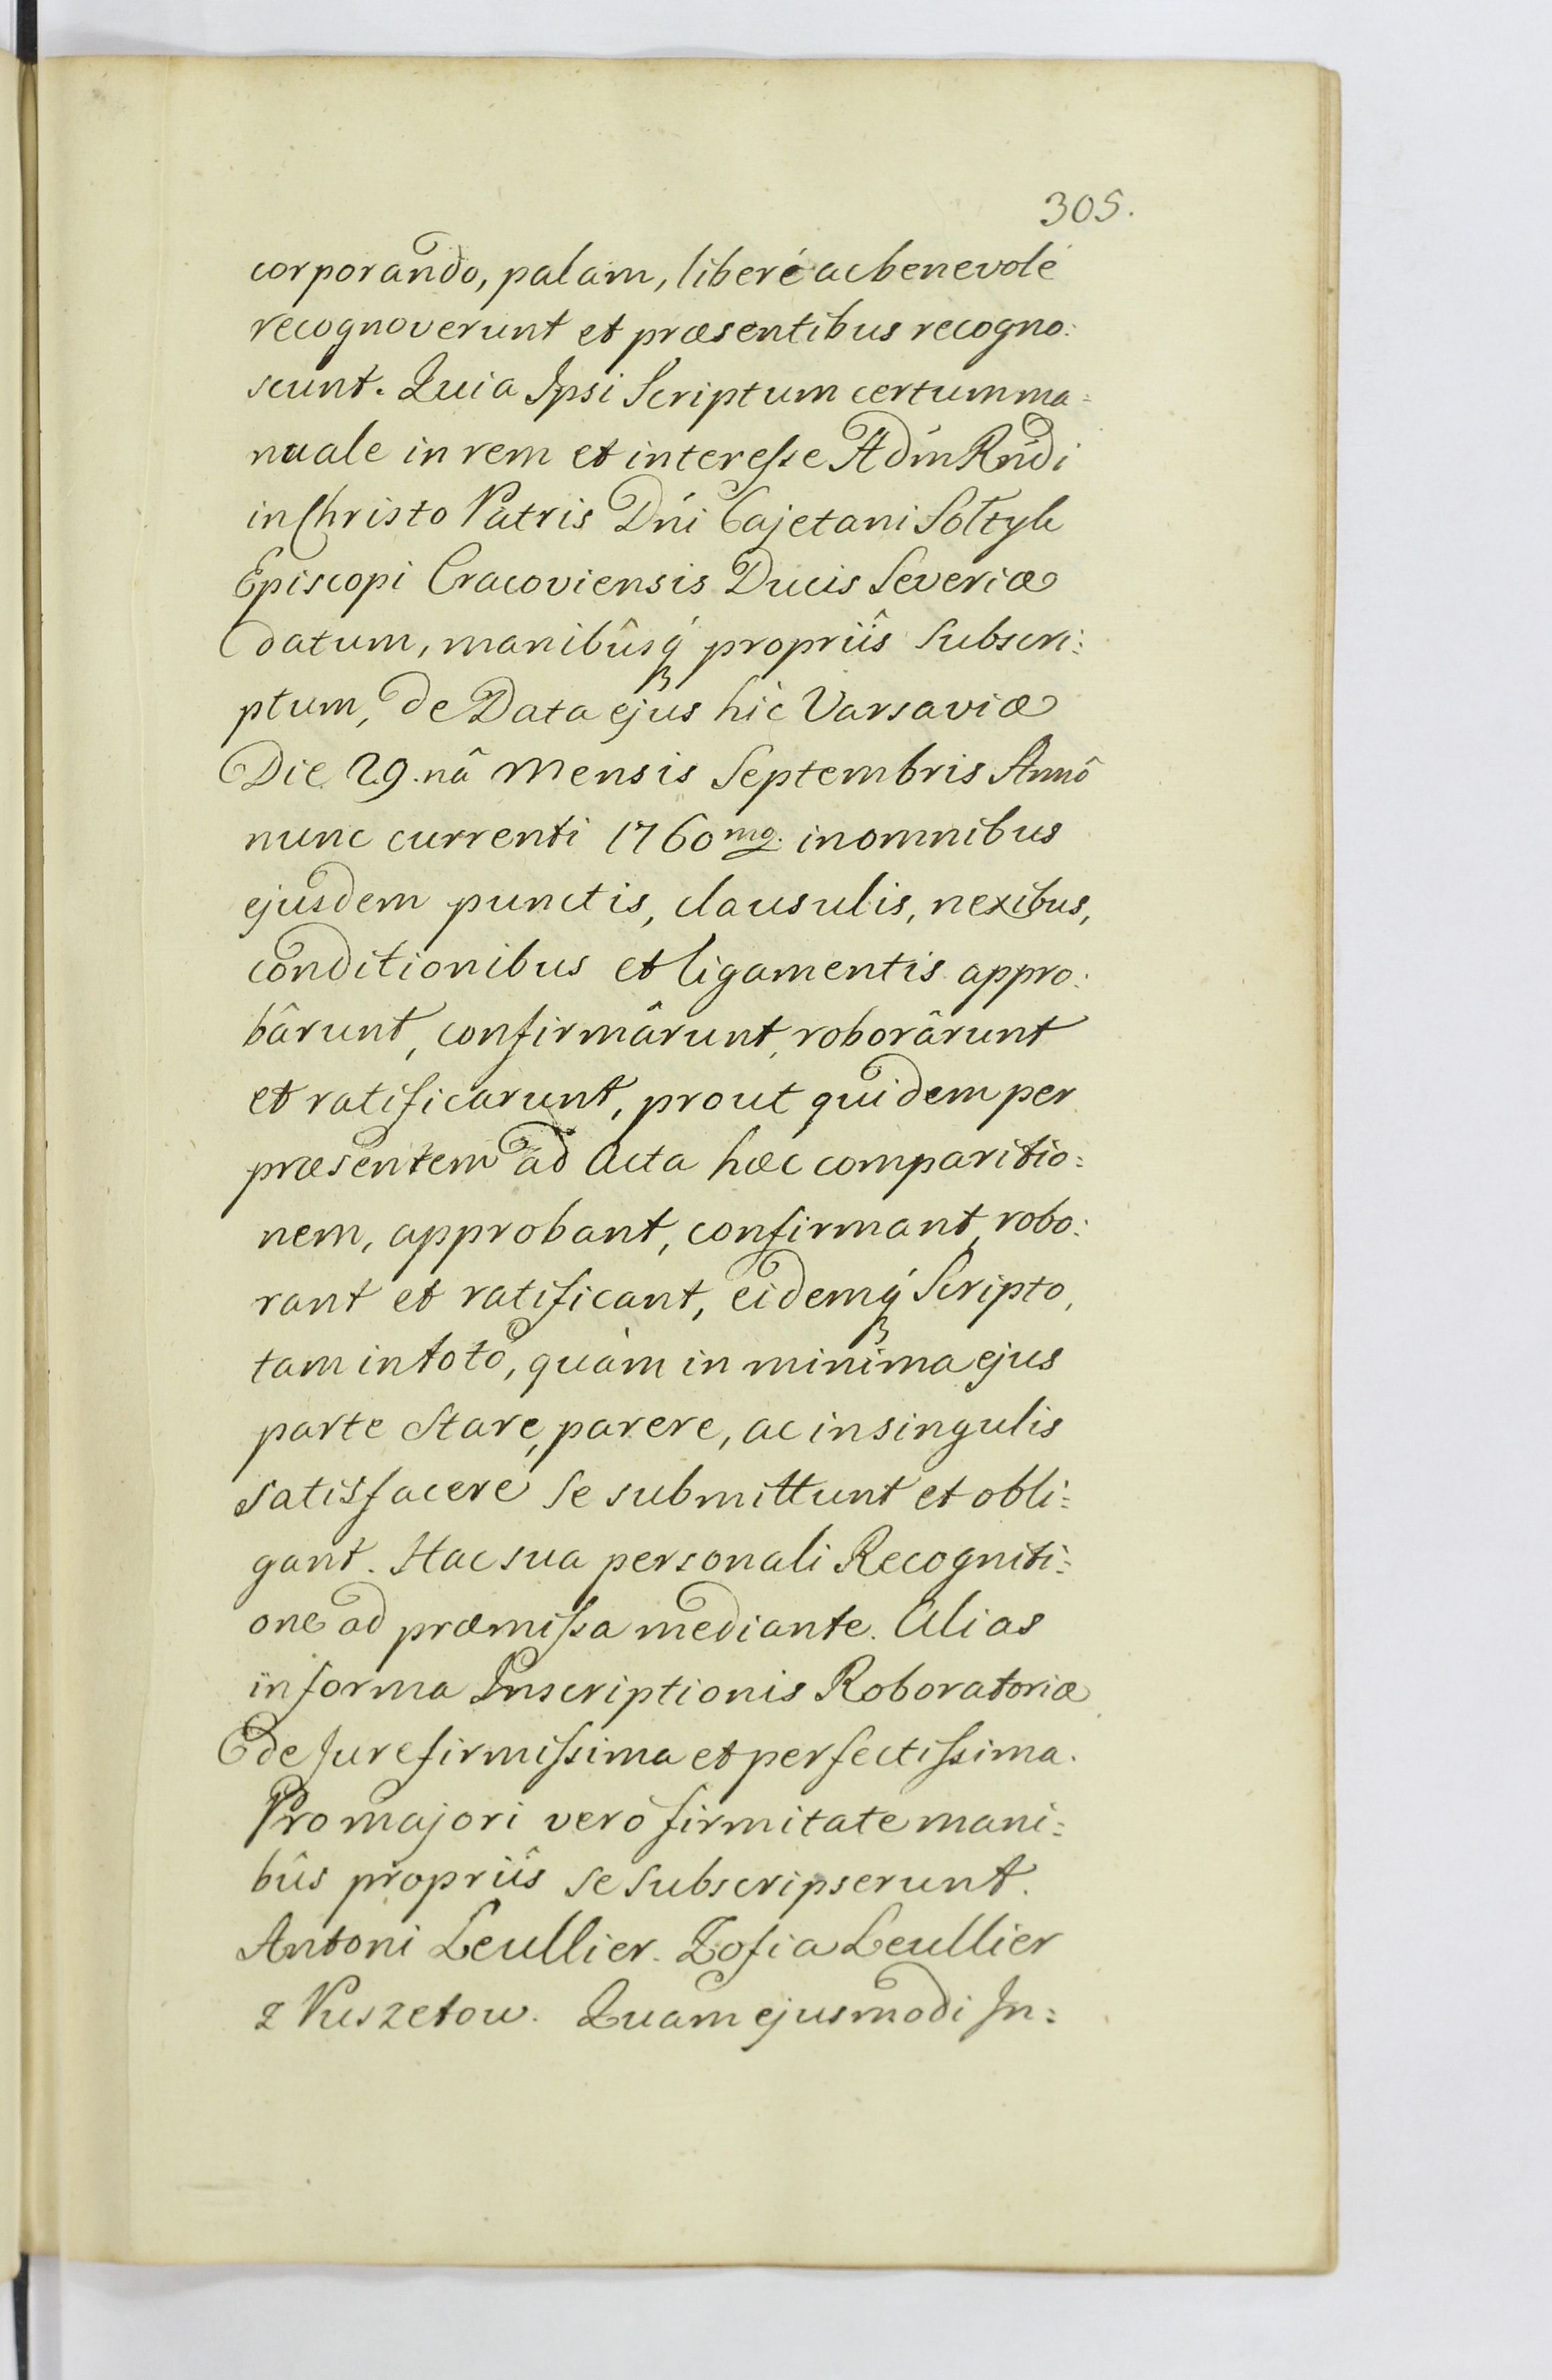 305.
corporando, palam, liberé ac benevolé
recognoverunt et præsentibus recogno:
scunt. Quia Ipsi Scriptum certum ma=
nuale in rem et interesse Adm Rńdi
in Christo Patris Dńi Cajetani Sołtyk
Episcopi Cracoviensis Ducis Severiæ
datum, manibûsq́ propriîs subscri:
ptum, de Data ejus hîc Varsaviæ
Die 29.nâ Mensis Septembris Annô
nunc currenti 1760mo. in omnibus
ejusdem punctis, clausulis, nexibus,
conditionibus et ligamentis appro:
bârunt, confirmârunt, roborârunt
et ratificarunt, prout quidem per
præsentem ad Acta hæc comparitio:
nem, approbant, confirmant, robo:
rant et ratificant, eidemq́ Scripto,
tam in toto, quàm in minima ejus
parte stare, parere, ac in singulis
satisfacere se submittunt et obli=
gant. Hac sua personali Recogniti=
one ad præmissa mediante. Alias
in forma Inscriptionis Roboratoriæ
de Jure firmissima et perfectissima.
Pro majori verò firmitate mani=
bûs propriîs se subscripserunt.
Antoni Leullier. Zofia Leullier
z Puszetow. Quam ejusmodi In=